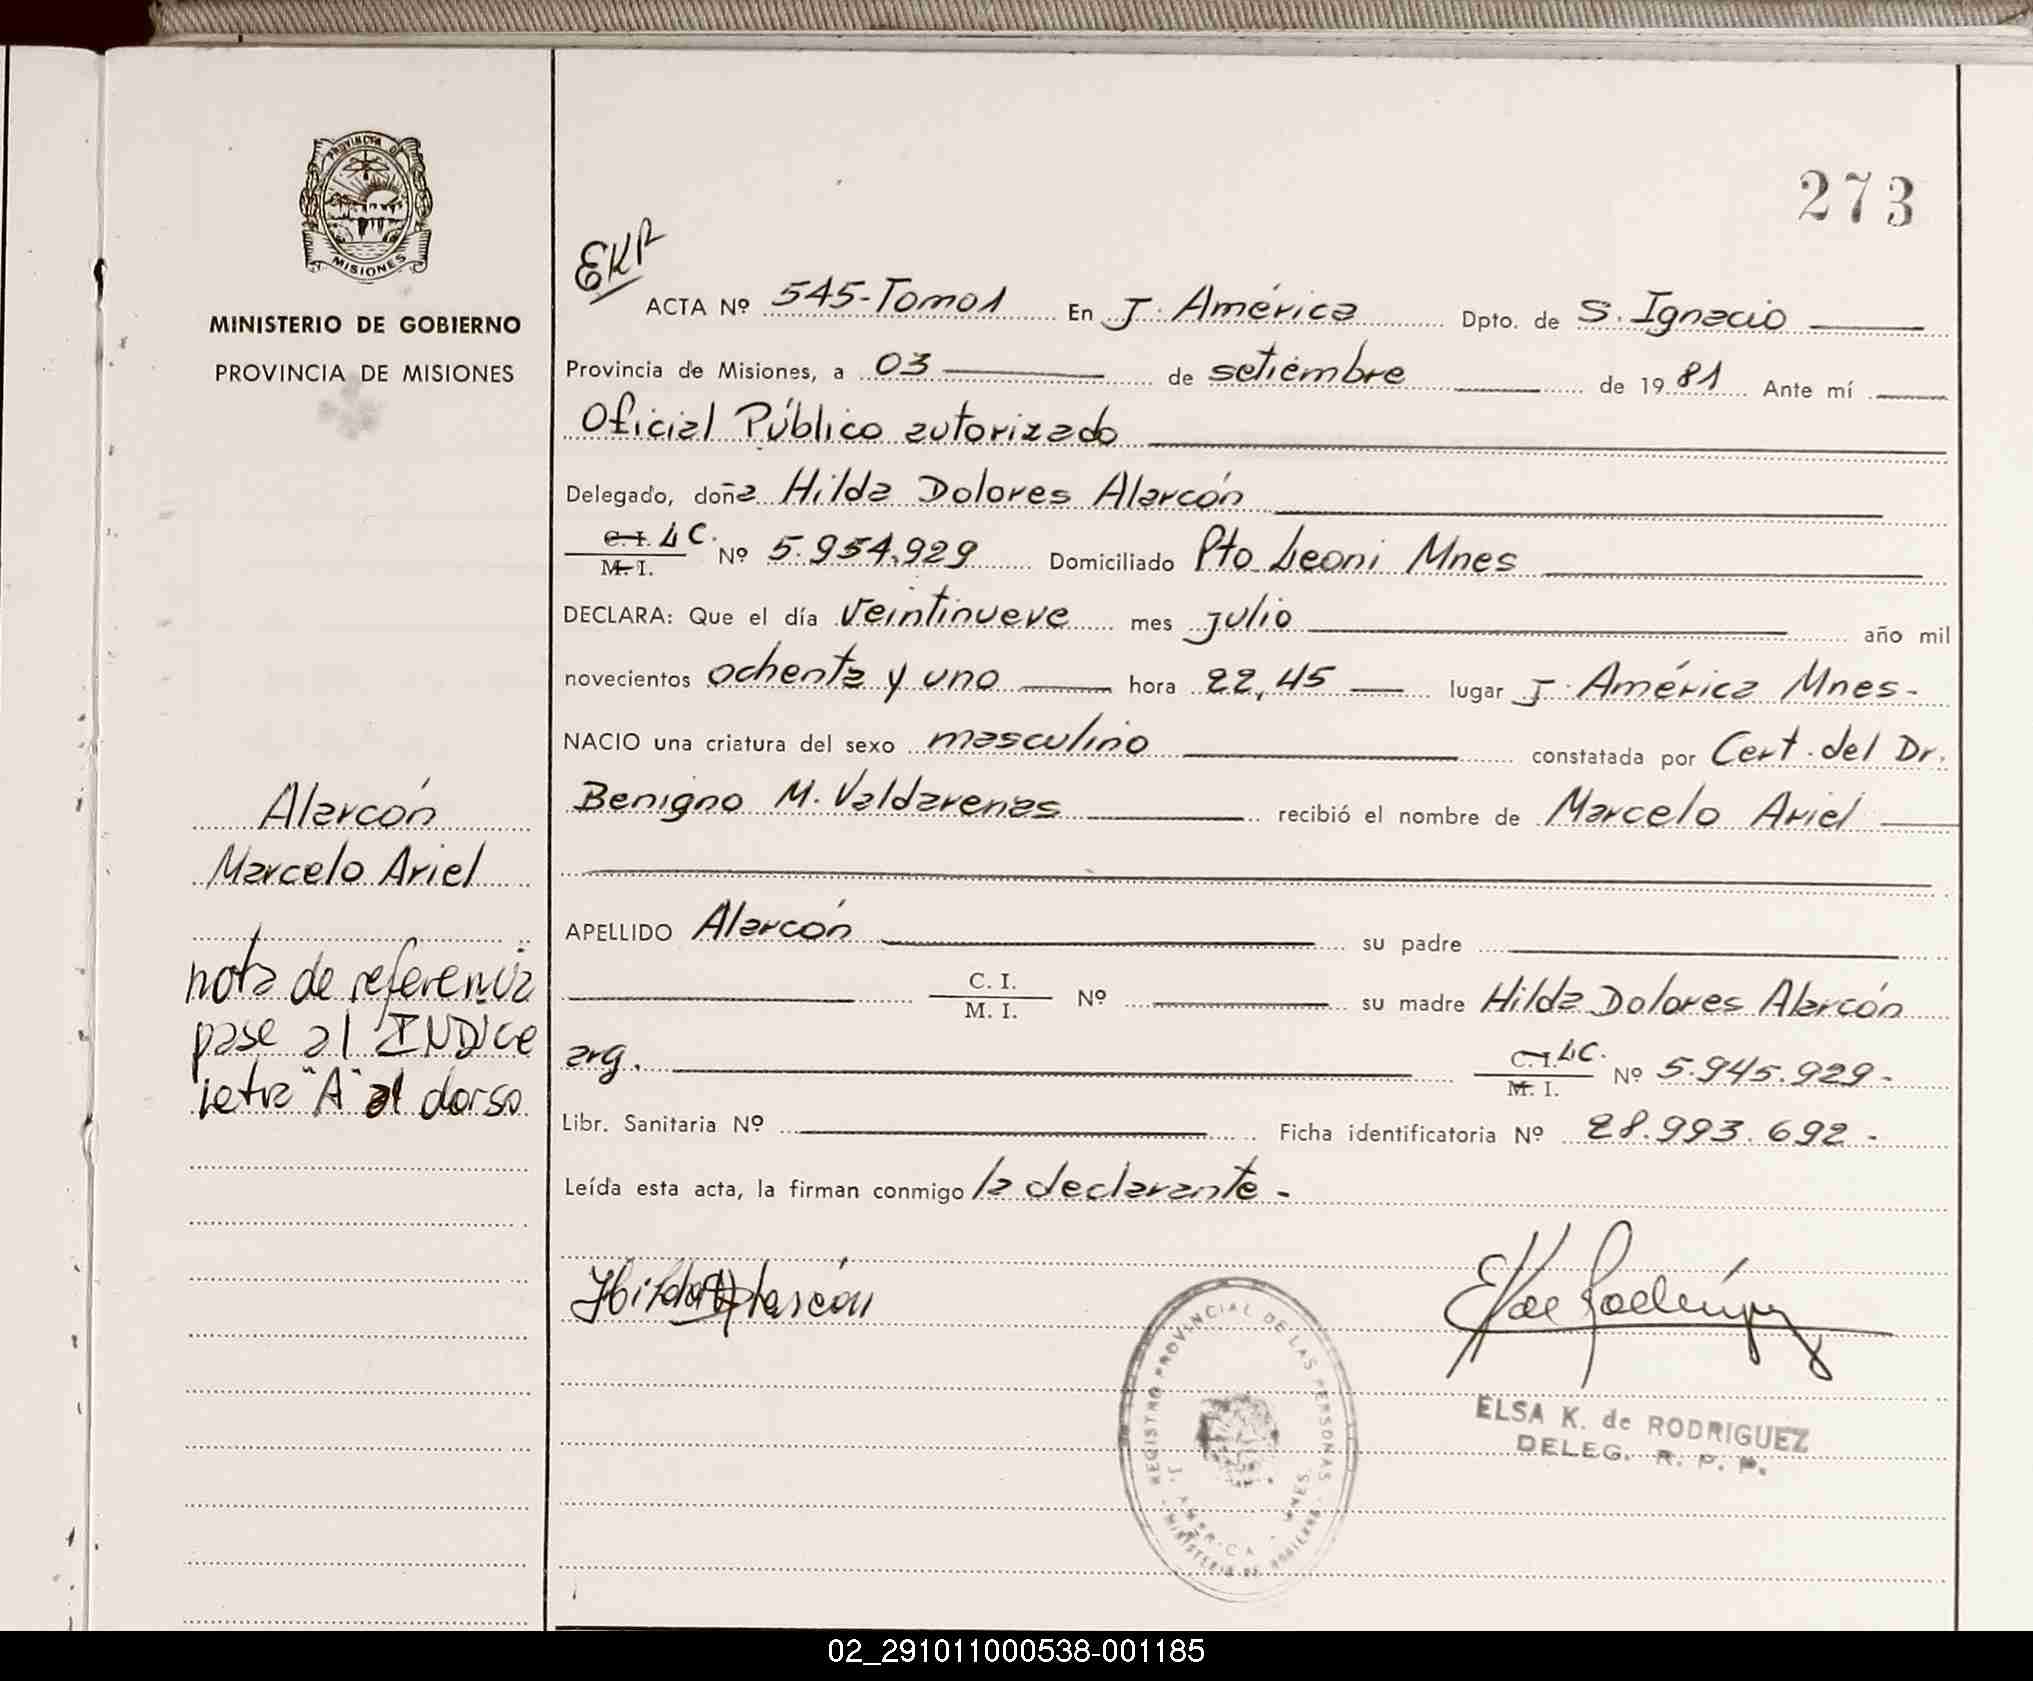 PROVINCIA DE
MISIONES
MINISTERIO DE GOBIERNO
PROVINCIA DE MISIONES
Alarcón
Marcelo Ariel
nota de referencia
pase al INDICE
letra "A" al dorso
273
EKR
ACTA Nº 545-Tomo1 En J. América Dpto. de S. Ignacio
Provincia de Misiones, a 03 de setiembre de 1981 Ante mí
Oficial Público autorizado
Delegado, doña Hilda Dolores Alarcón
C. I. LC.
M. I. Nº 5.954.929 Domiciliado Pto Leoni Mnes
DECLARA: Que el día veintinueve mes julio año mil
novecientos ochenta y uno hora 22,45 lugar J. América Mnes-
NACIO una criatura del sexo masculino constatada por Cert. del Dr.
Benigno M. Valdarenas recibió el nombre de Marcelo Ariel
APELLIDO Alarcón su padre
C. I.
M. I. Nº su madre Hilda Dolores Alarcón
arg. C. I. LC.
M. I. Nº 5.945.929-
Libr. Sanitaria Nº Ficha identificatoria Nº 28.993.692-
Leída esta acta, la firman conmigo la declarante-
Hilda Alarcón
EKde Rodríguez
REGISTRO PROVINCIAL DE LAS PERSONAS
J. AMERICA - MNES.
MINISTERIO DE GOBIERNO
ELSA K. de RODRIGUEZ
DELEG. R. P. P.
02_291011000538-001185